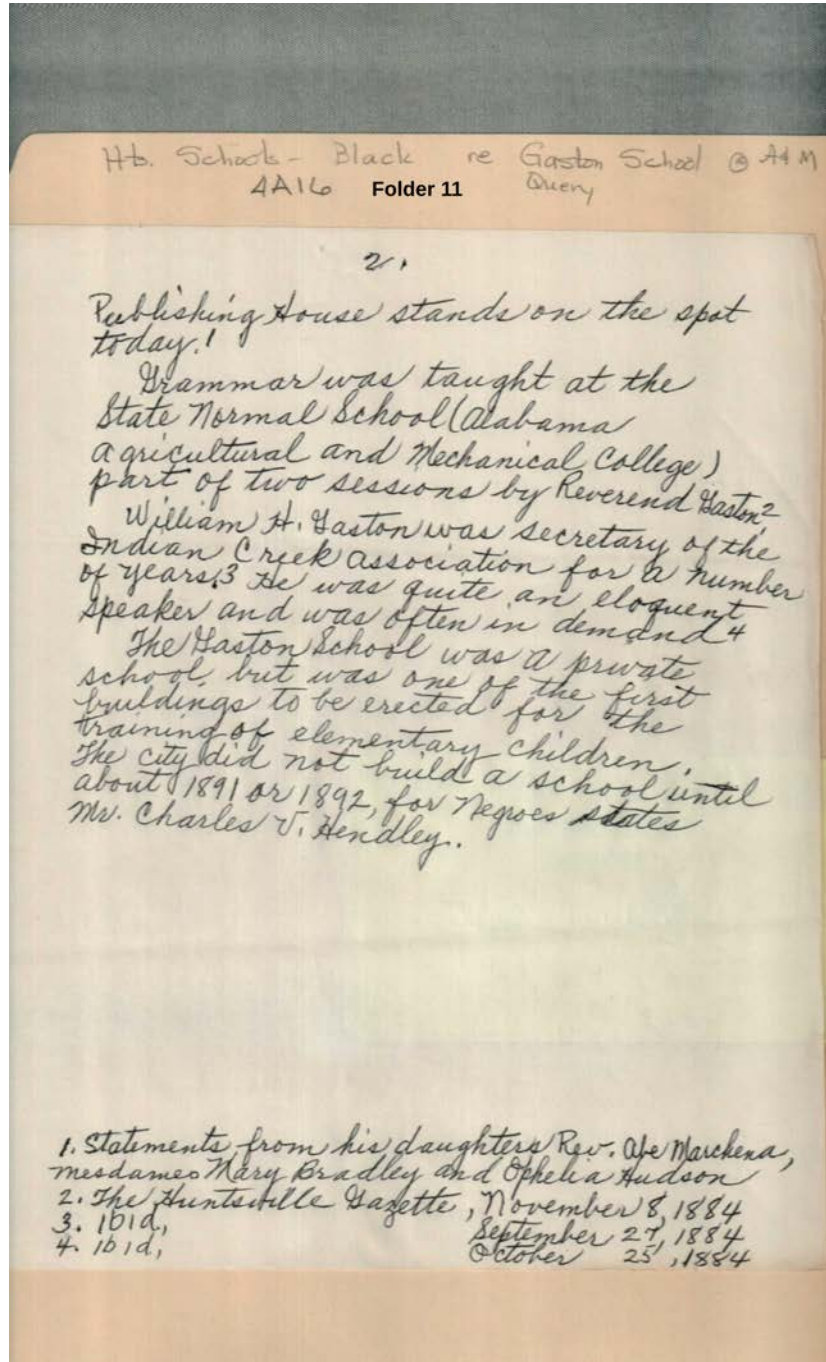 Hb. Schools - Black re Gaston School @ A&M
4A16 Folder 11 Query
2.
Publishing House stands on the spot
today.1
Grammar was taught at the
State Normal School (Alabama
Agricultural and Mechanical College)
part of two sessions by Reverend Gaston.2
William H. Gaston was secretary of the
Indian Creek Association for a number
of years.3 He was quite an eloquent
speaker and was often in demand4
The Gaston School was a private
school, but was one of the first
buildings to be erected for the
training of elementary children.
The city did not build a school until
about 1891 or 1892, for Negroes states
Mr. Charles V. Hendley.
1. Statements from his daughters Rev. Abe Marchena,
mesdames Mary Bradley and Ophelia Hudson
2. The Huntsville Gazette, November 8, 1884
3. ibid, September 27, 1884
4. ibid, October 25, 1884